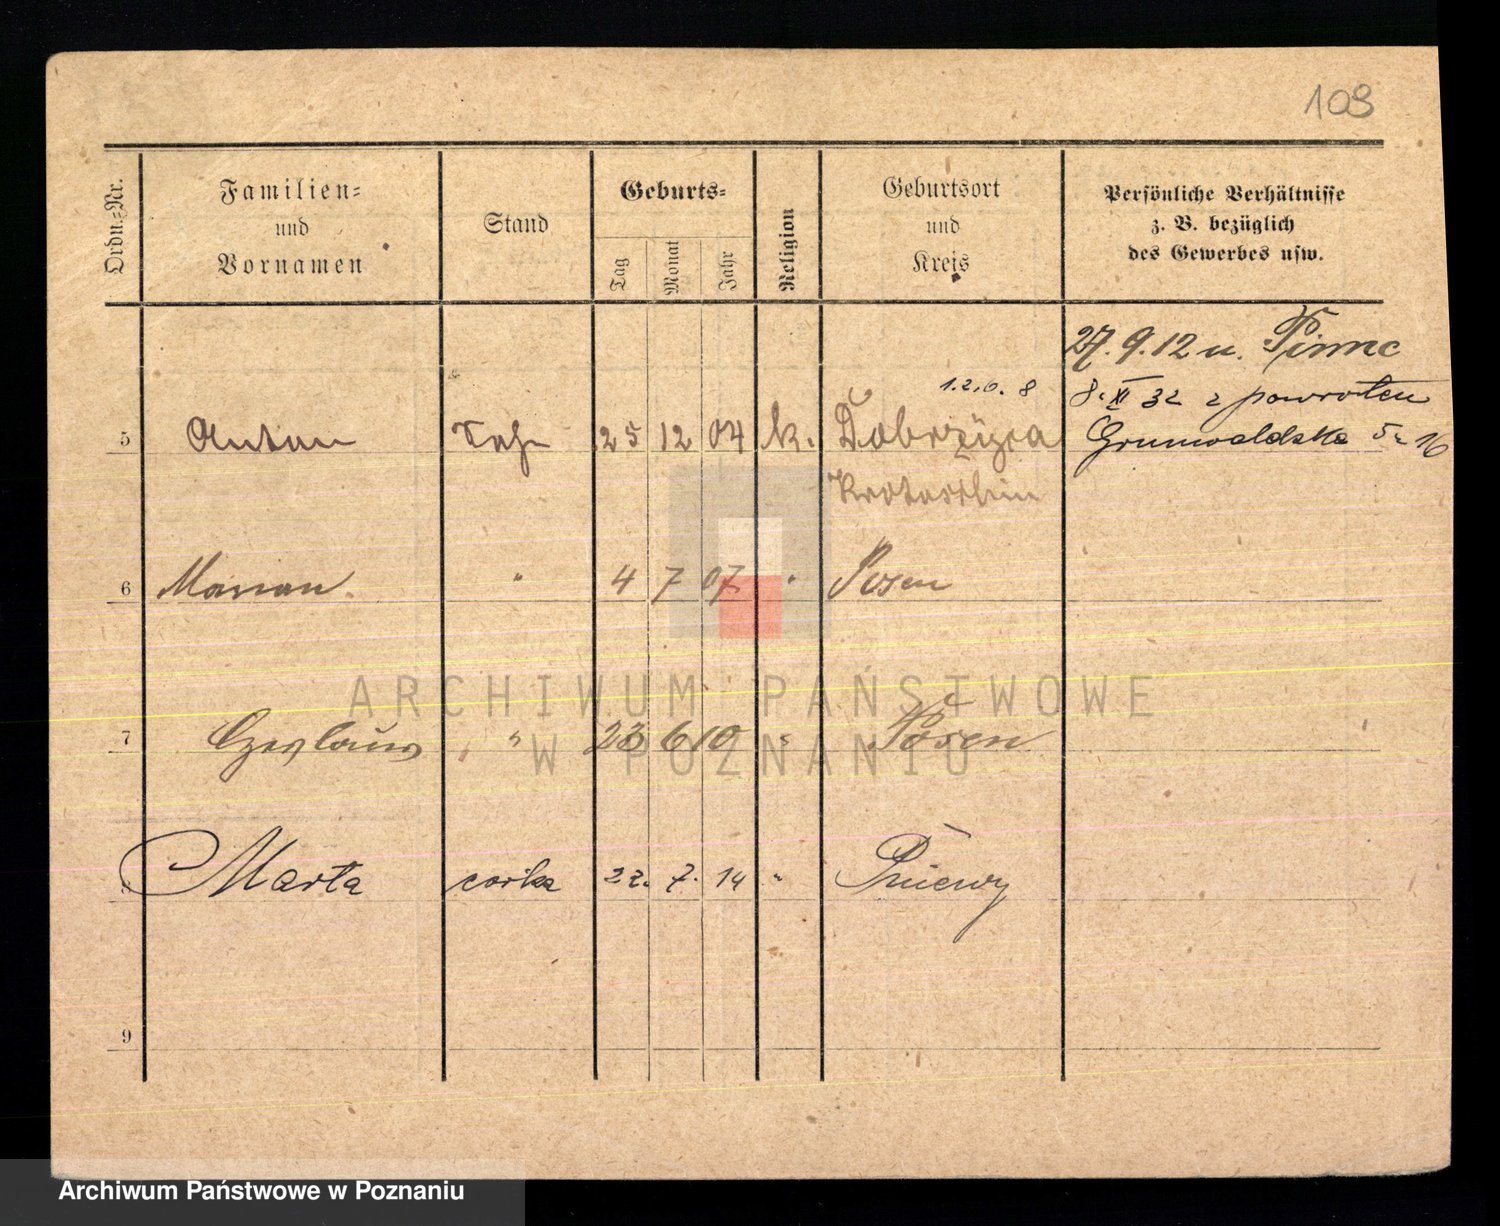 109
Ordn.=Nr.
Familien=
und
Vornamen
Stand
Geburts=
Tag
Monat
Jahr
Religion
Geburtsort
und
Kreis
Persönliche Verhältnisse
z. B. bezüglich
des Gewerbes usw.
27. 9. 12 n. Pinne
8. XI 32 z powrotem
Grunwaldska 16
5 Anton Sohn 25 12 04 k. Dobrzyca
Krotoschin
6 Marian " 4 7 07 " Posen
ARCHIWUM PAŃSTWOWE
W POZNANIU
7 Czeslaus " 23 6 10 " Posen
8 Marta córka 22. 7. 14 " Pniewy
9
Archiwum Państwowe w Poznaniu